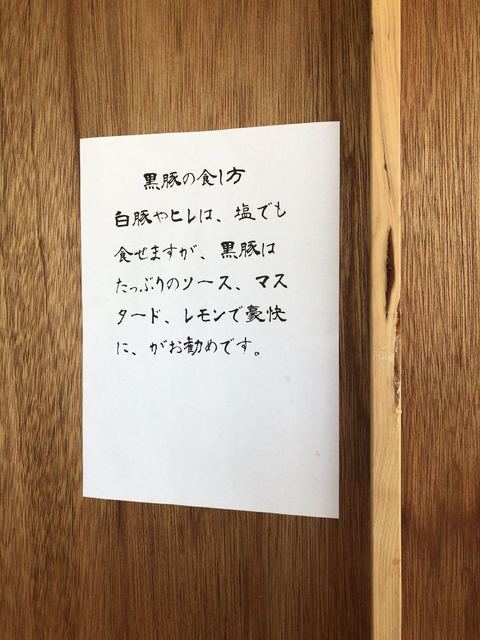 黒豚の食し方
白豚やヒレは、塩でも
食せますが、黒豚は
たっぷりのソース、マス
タード、レモンで豪快
に、がお勧めです。